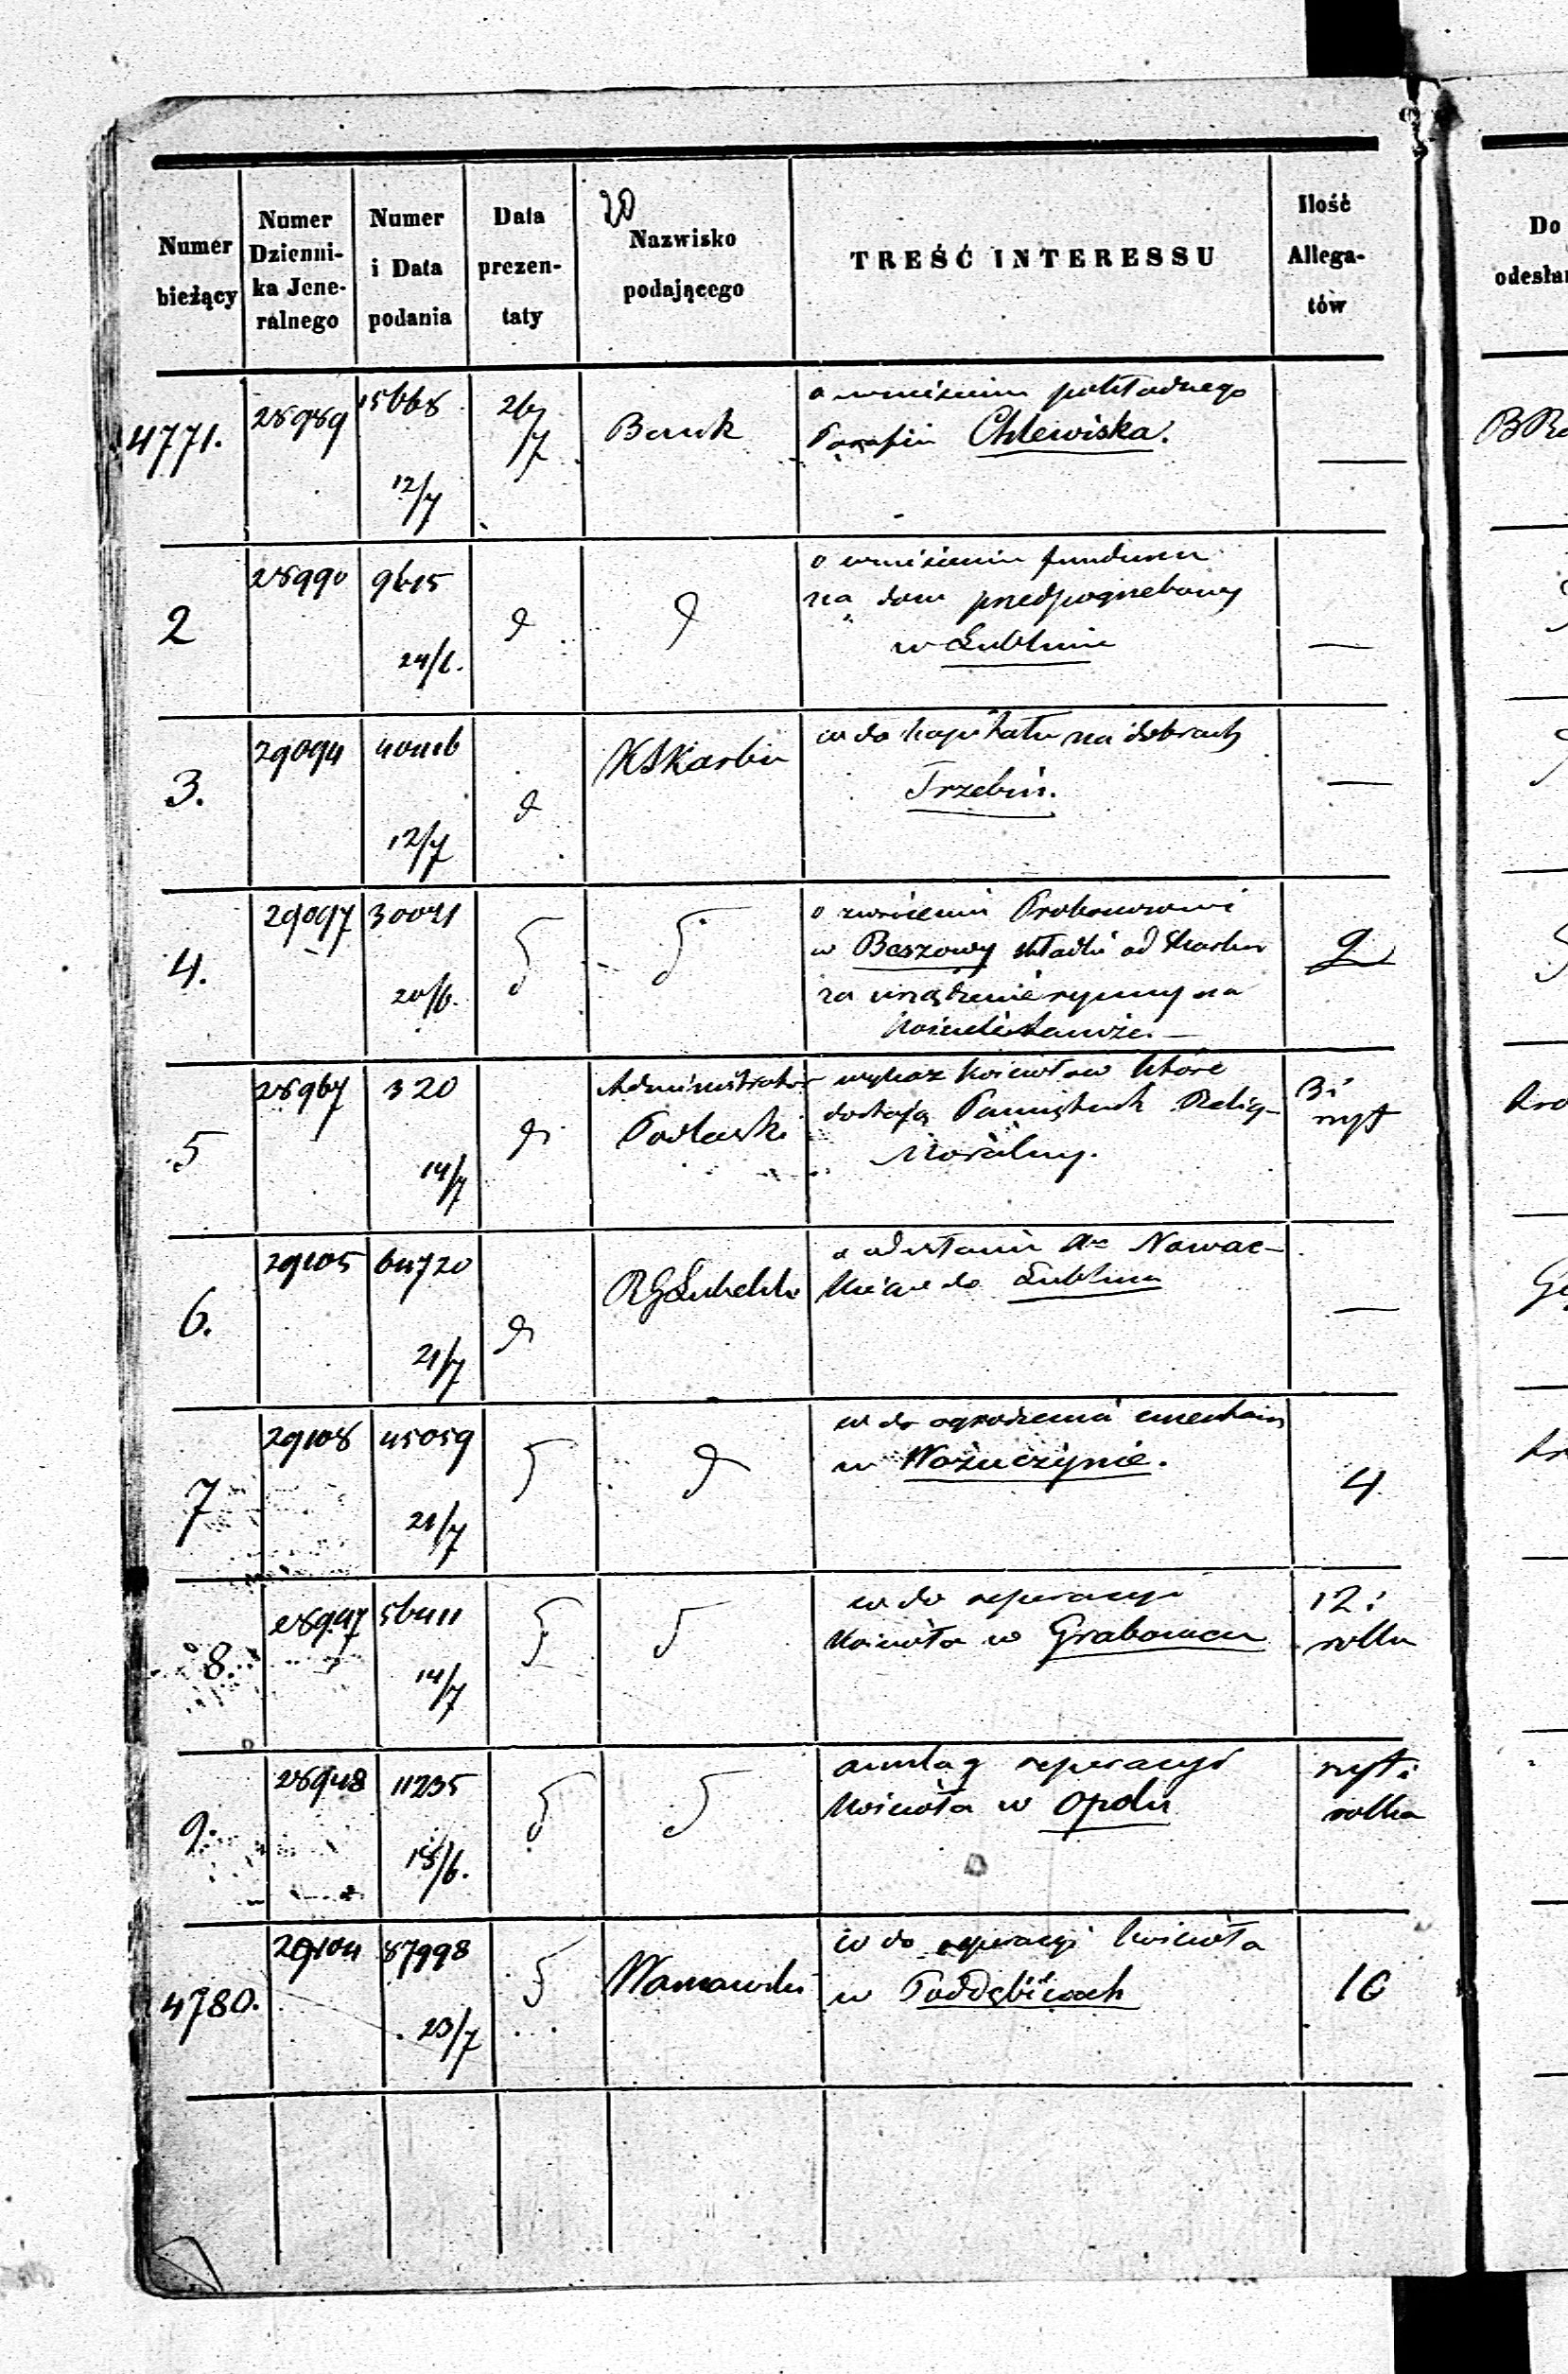 20
Numer bieżący
Numer Dzienni-
ka Jene-
ralnego
Numer
i Data
podania
Data
prezen-
taty
Nazwisko
podającego
TREŚĆ INTERESSU
Ilość
Allega-
tów
Do
odesła
4771. 28989 15668 12/7 26/7 Bank
o wniesieniu pokładnego
Parafii Chlewiska. —
2 28990 9615 24/6. d d
o wniesieniu funduszu
na dom przedpogrzebowy
w Lublinie —
3. 29094 12/7 d KSkarbu
co do kapitału na dobrach
Trzebin. —
4. 29097 30041 20/6.
o zwrócenie Proboszczowi
w Beszowy składki od Skarbu
za urządzenie rynny na
kościele 2
5 28967 320 14/7 d Administrator
Podlaski
wykaz kościołów które
dostają Pamiętnik Relig-
Moralny. 3 i
ryt
6. 29105 64720 21/7 d RGLubelski
o odesłanie Nowac-
kiego do Lublina —
7 29108 45059 21/7 d
co do ogrodzenia cmentarza
w Wożuczynie. 4
8. 28947 56411 14/7
co do reperacyi
kościoła w Grabowcu 12 i
rolka
9. 28948 11235 18/6.
anszlag reperacyi
kościoła w Opolu ryt i
rolka
4780. 29104 87998 23/7 Warszawski
co do reperacyi kościoła
w Poddębicach 16